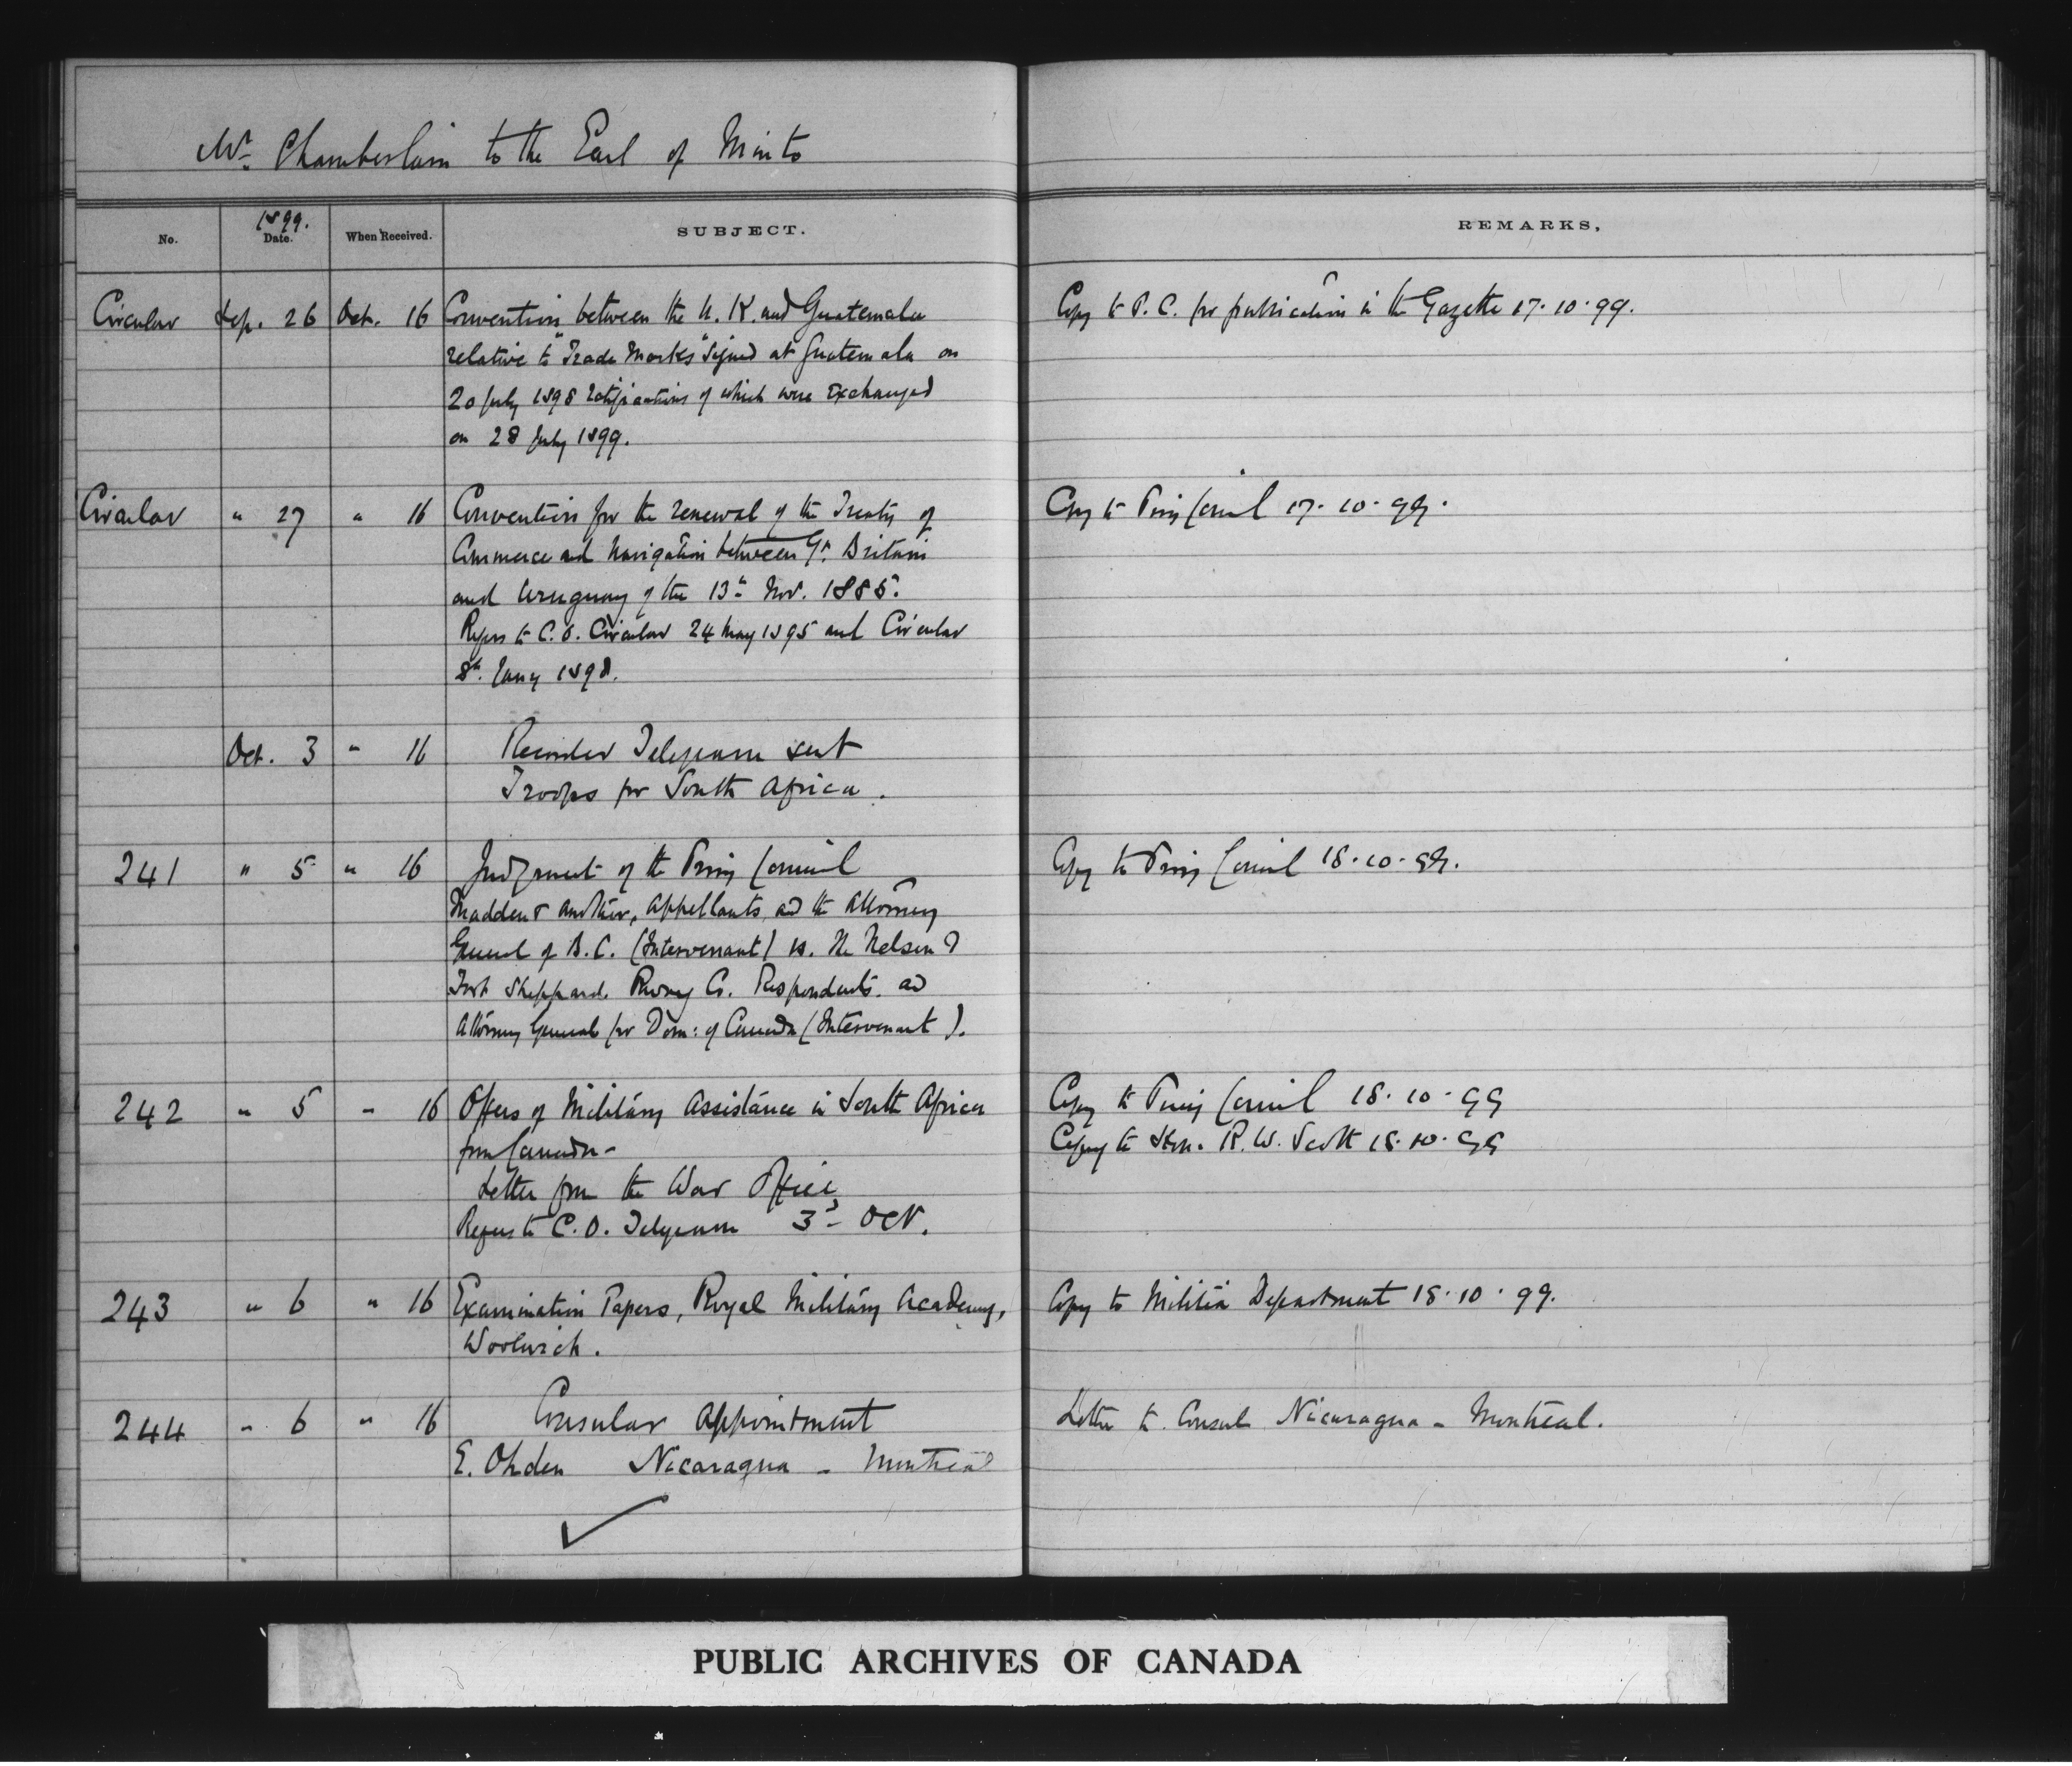 Mr. Chamberlain to the Earl of Minto
No. 1899. Date. When Received. SUBJECT. REMARKS.
Circular Sep. 26 Oct. 16 Convention between the U.K. and Guatemala Copy to P.C. for publication in the Gazette 17.10.99.
relative to "Trade Marks" signed at Guatemala on
20 July 1898 ratifications of which were exchanged
on 28 July 1899.
Circular " 27 " 16 Convention for the renewal of the Treaty of Copy to Privy Council 17.10.99.
Commerce and Navigation between Gt. Britain
and Uruguay of the 13th Nov. 1885.
Refers to C.O. Circular 24 May 1895 and Circular
8th. Jany 1898.
Oct. 3 " 16 Telegram sent
Troops for South Africa.
241 " 5 " 16 Judgment of the Privy Council Copy to Privy Council 18.10.99.
Madden & another, Appellants and the Attorney
General of B.C. (Intervenant) vs. The Nelson &
Fort Sheppard Rway Co. Respondents. and
Attorney General for Dom: of Canada (Intervenant).
242 " 5 " 16 Offers of Military Assistance in South Africa Copy to Privy Council 18.10.99
from Canada - Copy to Hon. R.W. Scott 18.10.99
Letter from the War Office
Refers to C.O. Telegram 3d Oct.
243 " 6 " 16 Examination Papers, Royal Military Academy, Copy to Militia Department 18.10.99.
Woolwich.
244 " 6 " 16 Consular Appointment Letter to Consul Nicaragua - Montreal.
E. Ohden Nicaragua - Montreal
PUBLIC ARCHIVES OF CANADA